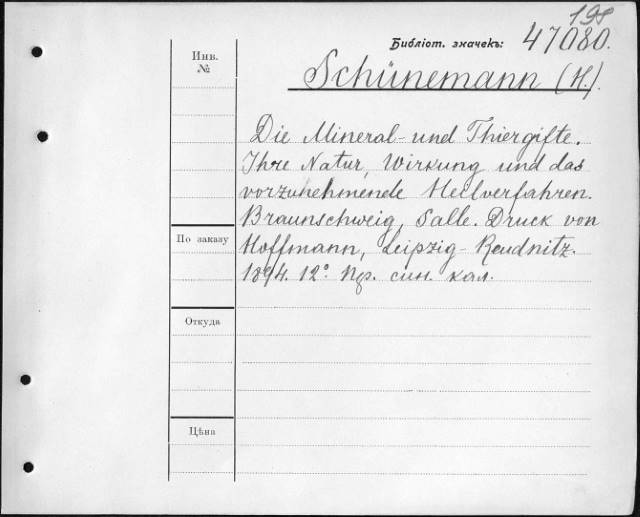 198
Библіот. значекъ: 47080.
Инв.
№
Schünemann (H.).
Die Mineral- und Thiergifte.
Ihre Natur, Wirkung und das
vorzunehmende Heilverfahren.
Braunschweig, Salle. Druck von
Hoffmann, Leipzig-Reudnitz.
1894. 12°. син. кол.
По заказу
Откуда
Цѣна